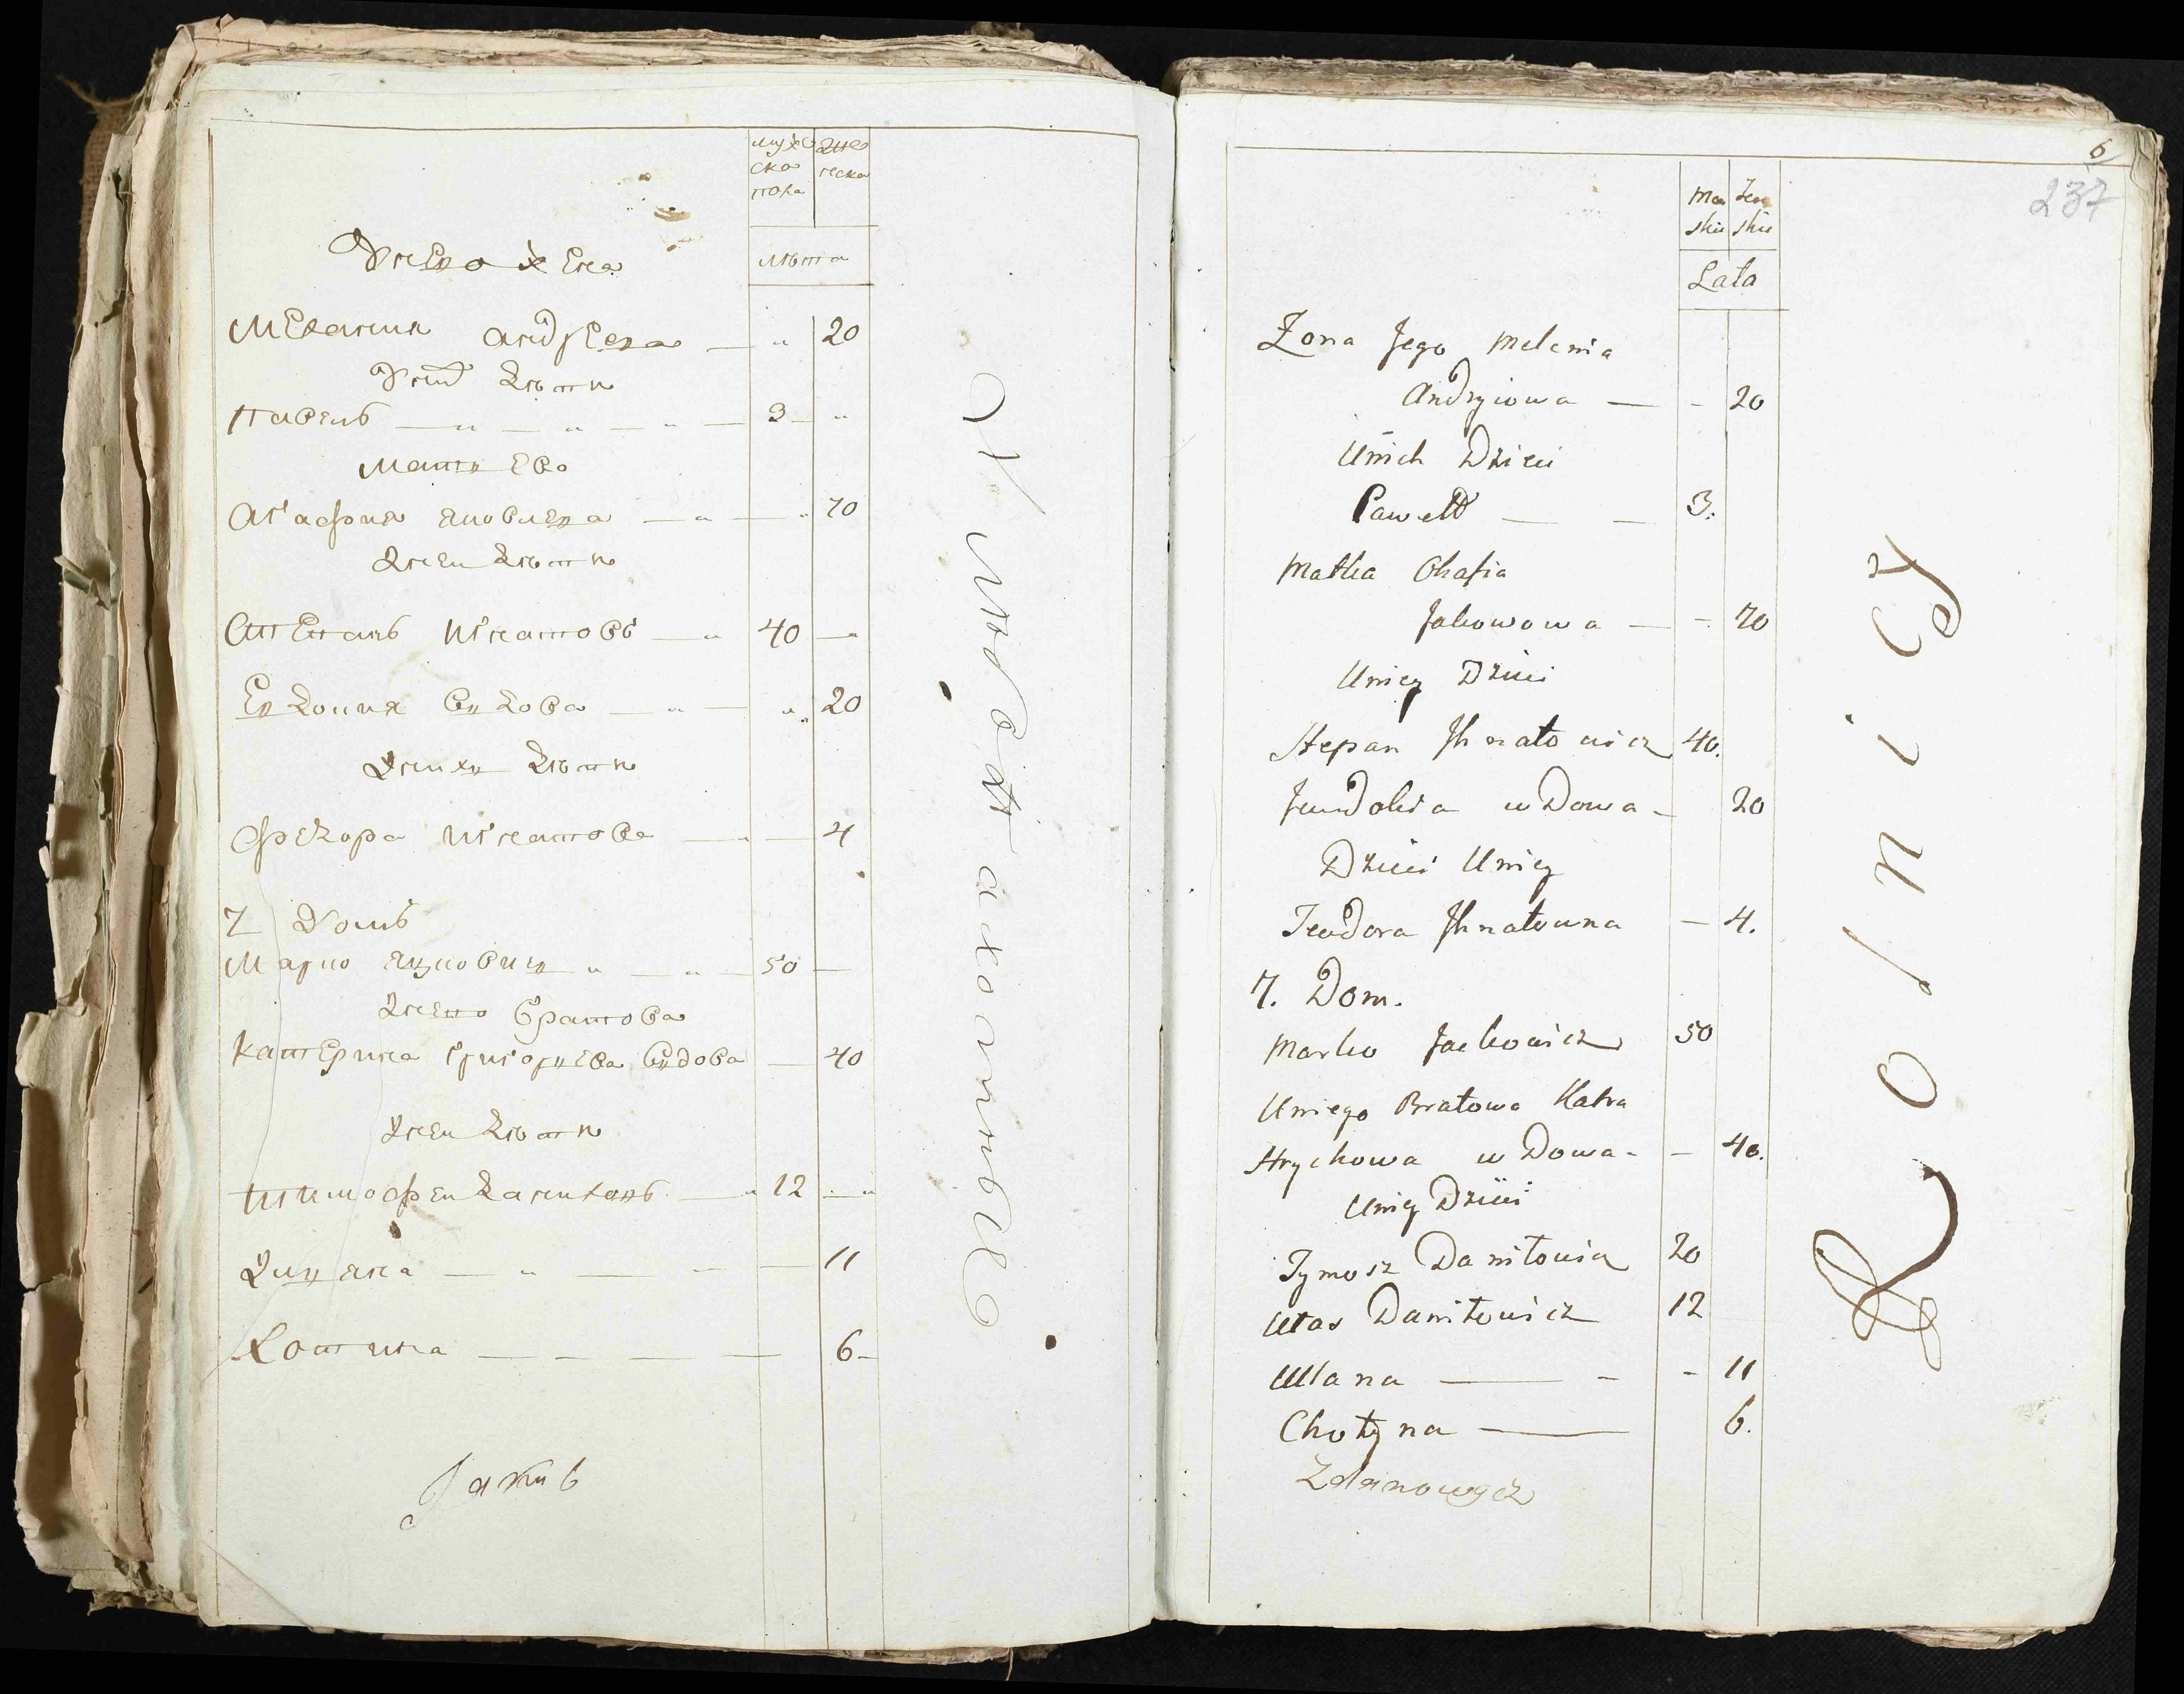 мужс
ска
пола
женс
ческа
лѣта
У него жена
Мелания андреева — " 20
У ни дѣти
Павелъ — " — " — " — 3 "
мати Ево
Агафия яковлева — " — " 70
У неи дѣти
Степанъ Игнатовъ — " 40 — "
Евдокия вдова — " — " 20
У нихъ дѣти
Феѡдора Игнатова — " — 4
7 Домъ
Марко яцковичъ " — " — 50 —
У нево братова
Катерина григориева вдова — 40
У неи дѣти
Тимофеи Данилов — " 12 — "
Улияна — " — — — 11
Хотина — — — — 6 –
Якиъ
6
237
Mę
skie
Żeń
skie
Lata
Żona Jego Melania
Andryiowa — - 20
U nich Dzieci
Paweł — — 3.
Matka Ohafia
Jakowowa — - 70
U niey Dzieci
Stepan Jhnatowicz 40.
Jewdokia wdowa - 20
Dzieci U niey
Teodora Jhnatowna — 4.
7. Dom.
Marko Jackowicz 50
U niego Bratowa Katra
Hrychowa wdowa - — 40.
U niey Dzieci
Tymosz Daniłowicz 20
Ułas Daniłowicz 12
Ullana — - - 11
Chotyna — 6.
Zdanowycz
Rolnicy